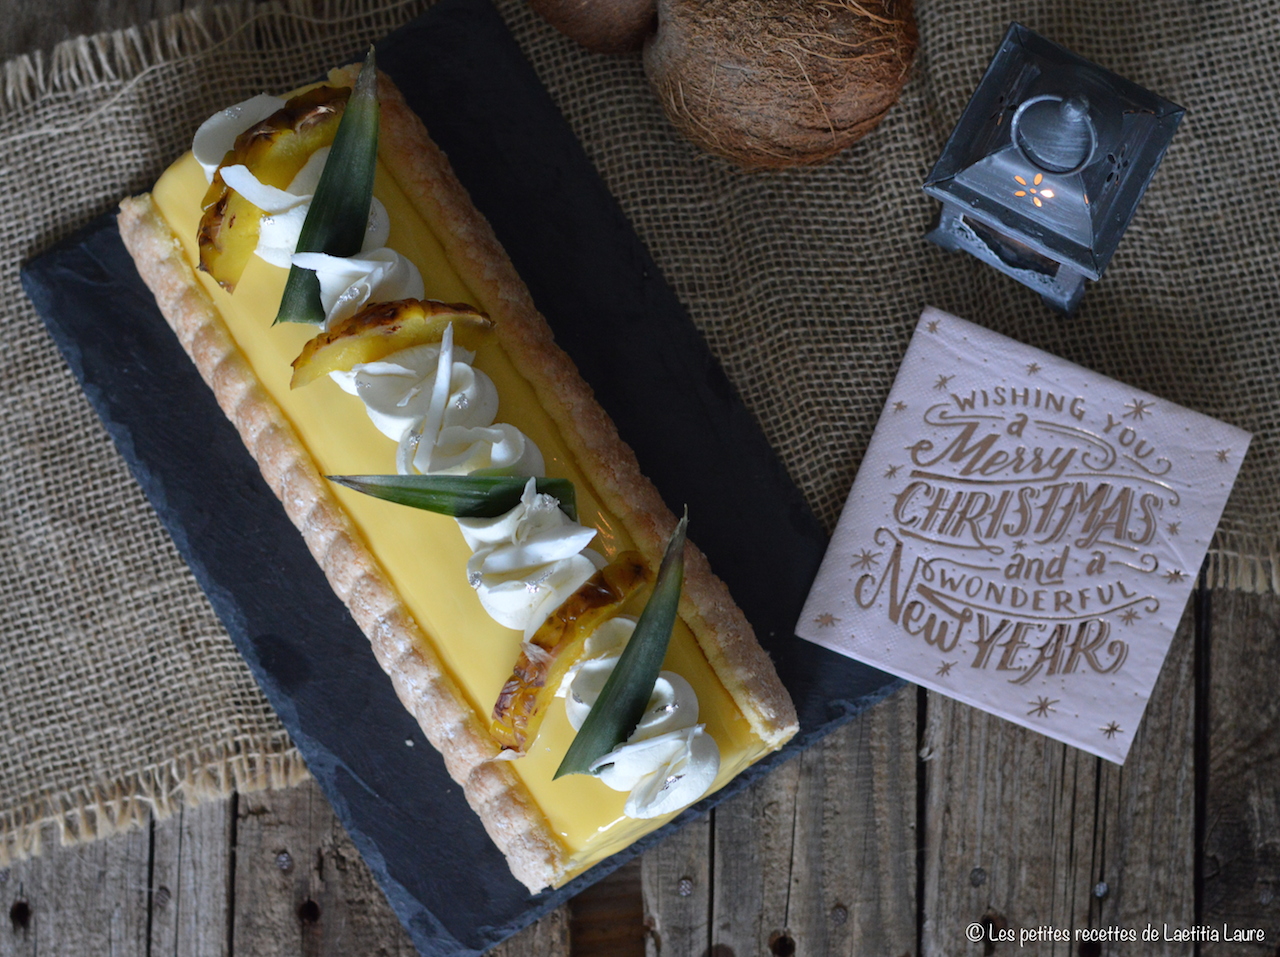 WISHING YOU
a
Merry
CHRISTMAS
and a
WONDERFUL
New YEAR
© Les petites recettes de Laetitia Laure